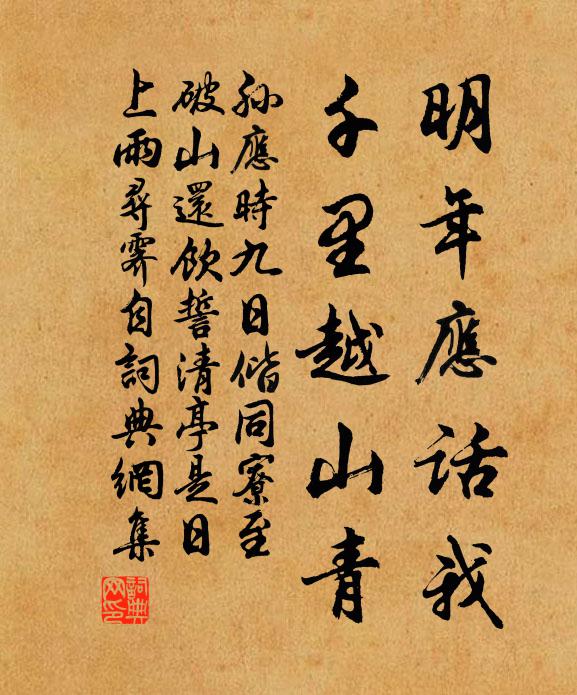 明年應話我
千里越山青
孫應時九日偕同寮至
破山還飲誓清亭是日
上雨尋霽自詞典網集
詞典網印